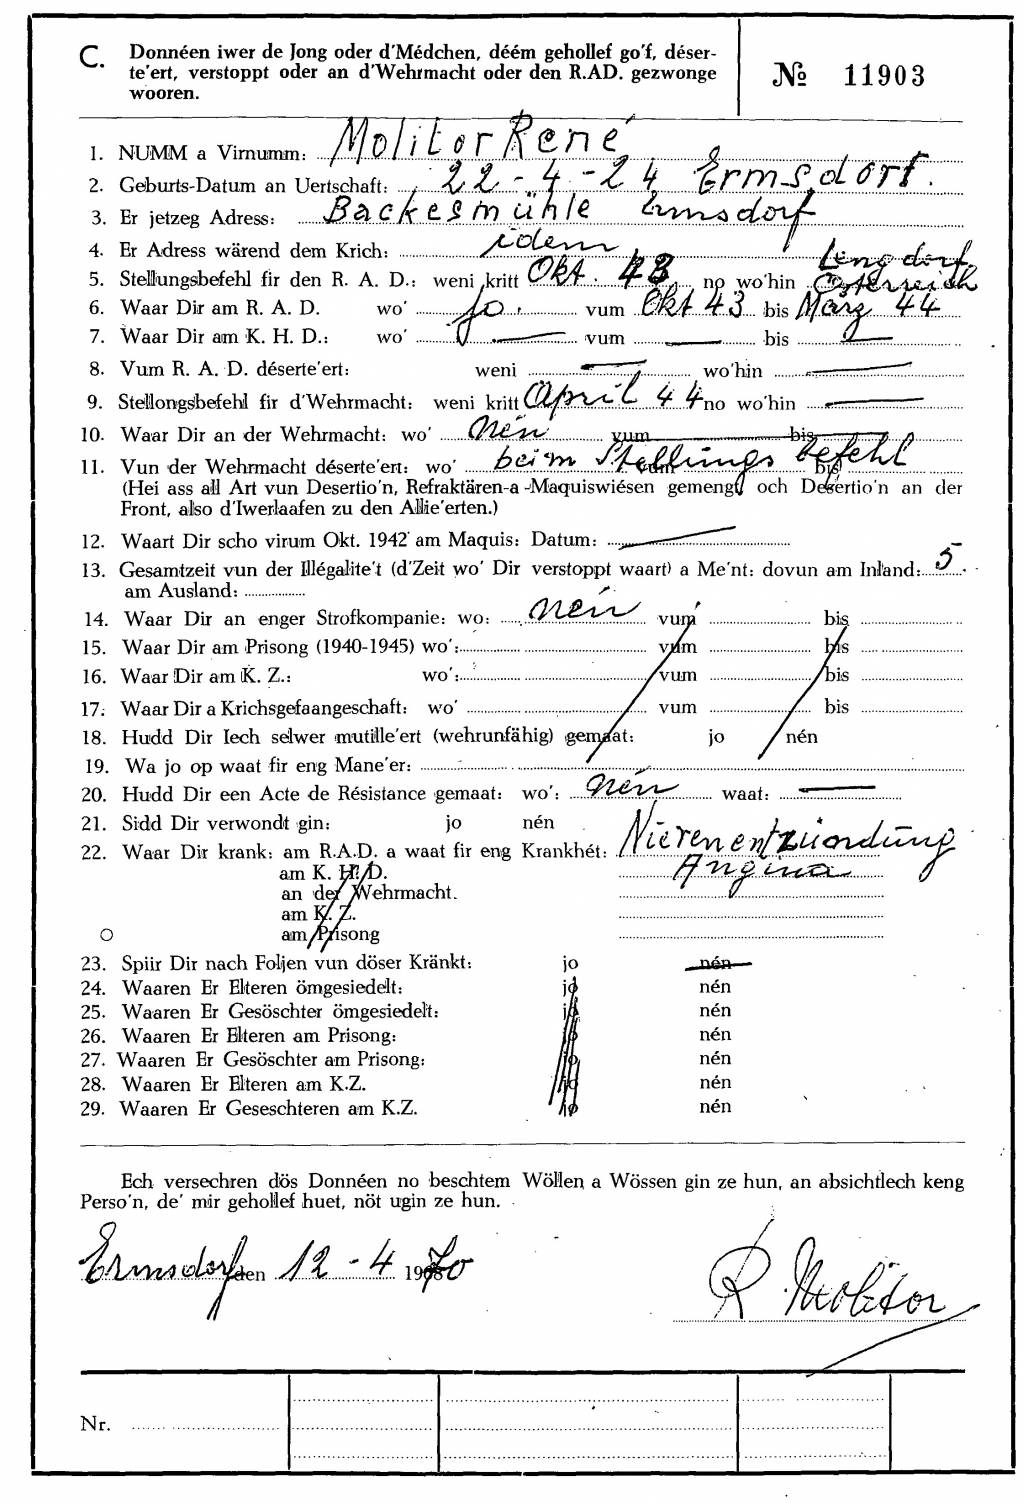 C. Donnéen iwer de Jong oder d'Médchen, déém gehollef go'f, déser-
te'ert, verstoppt oder an d'Wehrmacht oder den R.AD. gezwonge
wooren.
№ 11903
1. NUMM a Virnumm: Molitor René
2. Geburts-Datum an Uertschaft: 22-4-24 Ermsdorf.
3. Er jetzeg Adress: Backesmühle Ermsdorf
4. Er Adress wärend dem Krich: idem
5. Stellungsbefehl fir den R. A. D.: weni kritt Okt. 43 no wo'hin Lengdorf Österreich
6. Waar Dir am R. A. D. wo' jo. vum Okt 43 bis März 44
7. Waar Dir am K. H. D.: wo' — vum — bis —
8. Vum R. A. D. déserte'ert: weni — wo'hin —
9. Stellongsbefehl fir d'Wehrmacht: weni kritt April 44 no wo'hin —
10. Waar Dir an der Wehrmacht: wo' nén vum bis
11. Vun der Wehrmacht déserte'ert: wo' beim Stellungsbefehl vum bis
(Hei ass all Art vun Desertio'n, Refraktären-a -Maquiswiésen gemengt, och Desertio'n an der
Front, also d'Iwerlaafen zu den Allie'erten.)
12. Waart Dir scho virum Okt. 1942 am Maquis: Datum: —
13. Gesamtzeit vun der Illégalite't (d'Zeit wo' Dir verstoppt waart) a Me'nt: dovun am Inland: 5
am Ausland:
14. Waar Dir an enger Strofkompanie: wo: nén vum bis
15. Waar Dir am Prisong (1940-1945) wo': vum bis
16. Waar Dir am K. Z.: wo': vum bis
17. Waar Dir a Krichsgefaangeschaft: wo' vum bis
18. Hudd Dir Iech selwer mutille'ert (wehrunfähig) gemaat: jo nén
19. Wa jo op waat fir eng Mane'er:
20. Hudd Dir een Acte de Résistance gemaat: wo': nén waat: —
21. Sidd Dir verwondt gin: jo nén
22. Waar Dir krank: am R.A.D. a waat fir eng Krankhét: Nierenentzündung
am K. H. D. Angina
an der Wehrmacht.
am K. Z.
am Prisong
23. Spiir Dir nach Foljen vun döser Kränkt: jo nén
24. Waaren Er Elteren ömgesiedelt: jo nén
25. Waaren Er Gesöschter ömgesiedelt: jo nén
26. Waaren Er Elteren am Prisong: jo nén
27. Waaren Er Gesöschter am Prisong: jo nén
28. Waaren Er Elteren am K.Z. jo nén
29. Waaren Er Geseschteren am K.Z. jo nén
Ech versechren dös Donnéen no beschtem Wöllen a Wössen gin ze hun, an absichtlech keng
Perso'n, de' mir gehollef huet, nöt ugin ze hun.
Ermsdorf den 12-4 1970
R. Molitor
Nr.